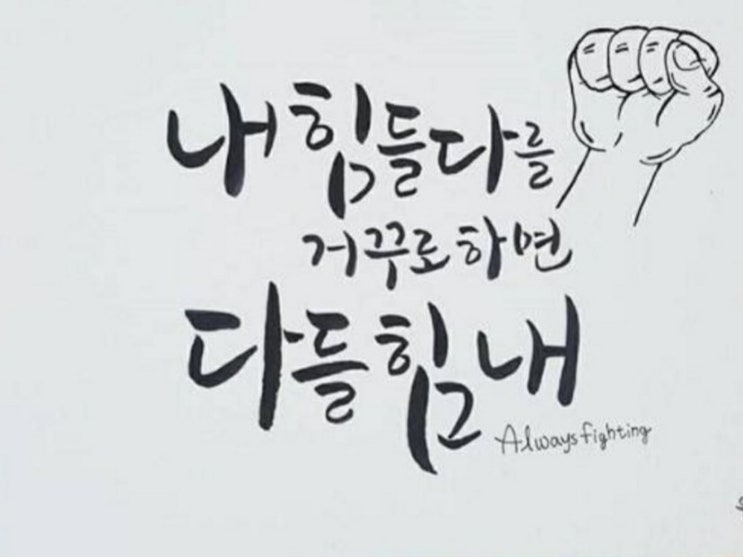 내힘들다를
거꾸로하면
다들힘내
Always fighting